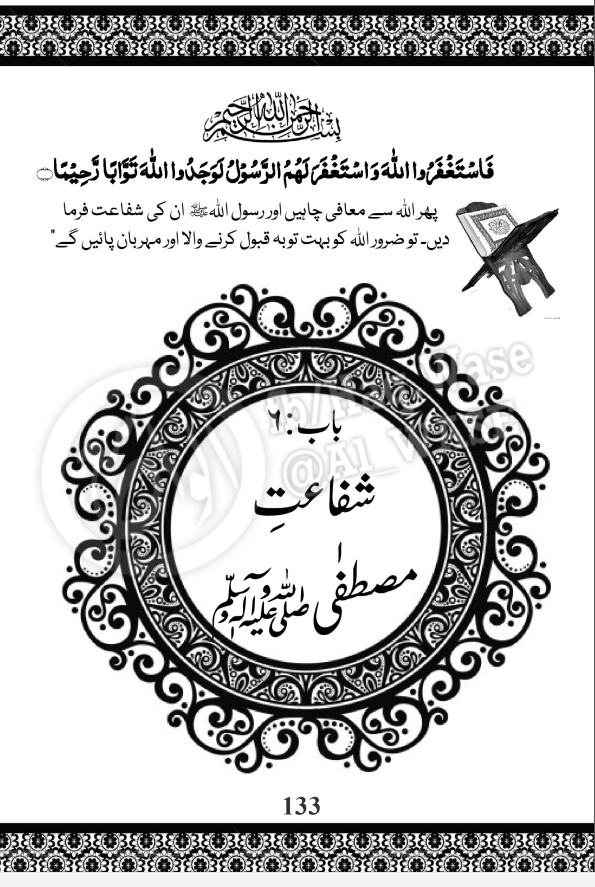 بسم الله الرحمن الرحيم
فَاسْتَغْفَرُوا اللهَ وَاسْتَغْفَرَ لَهُمُ الرَّسُوْلُ لَوَجَدُوا اللهَ تَوَّابًا رَّحِيْمًا
پھر اللہ سے معافی چاہیں اور رسول اللہ ﷺ ان کی شفاعت فرما
دیں۔ تو ضرور اللہ کو بہت توبہ قبول کرنے والا اور مہربان پائیں گے"
باب: ٦
شفاعتِ
مصطفٰی صلی اللہ علیہ وآلہ وسلم
133